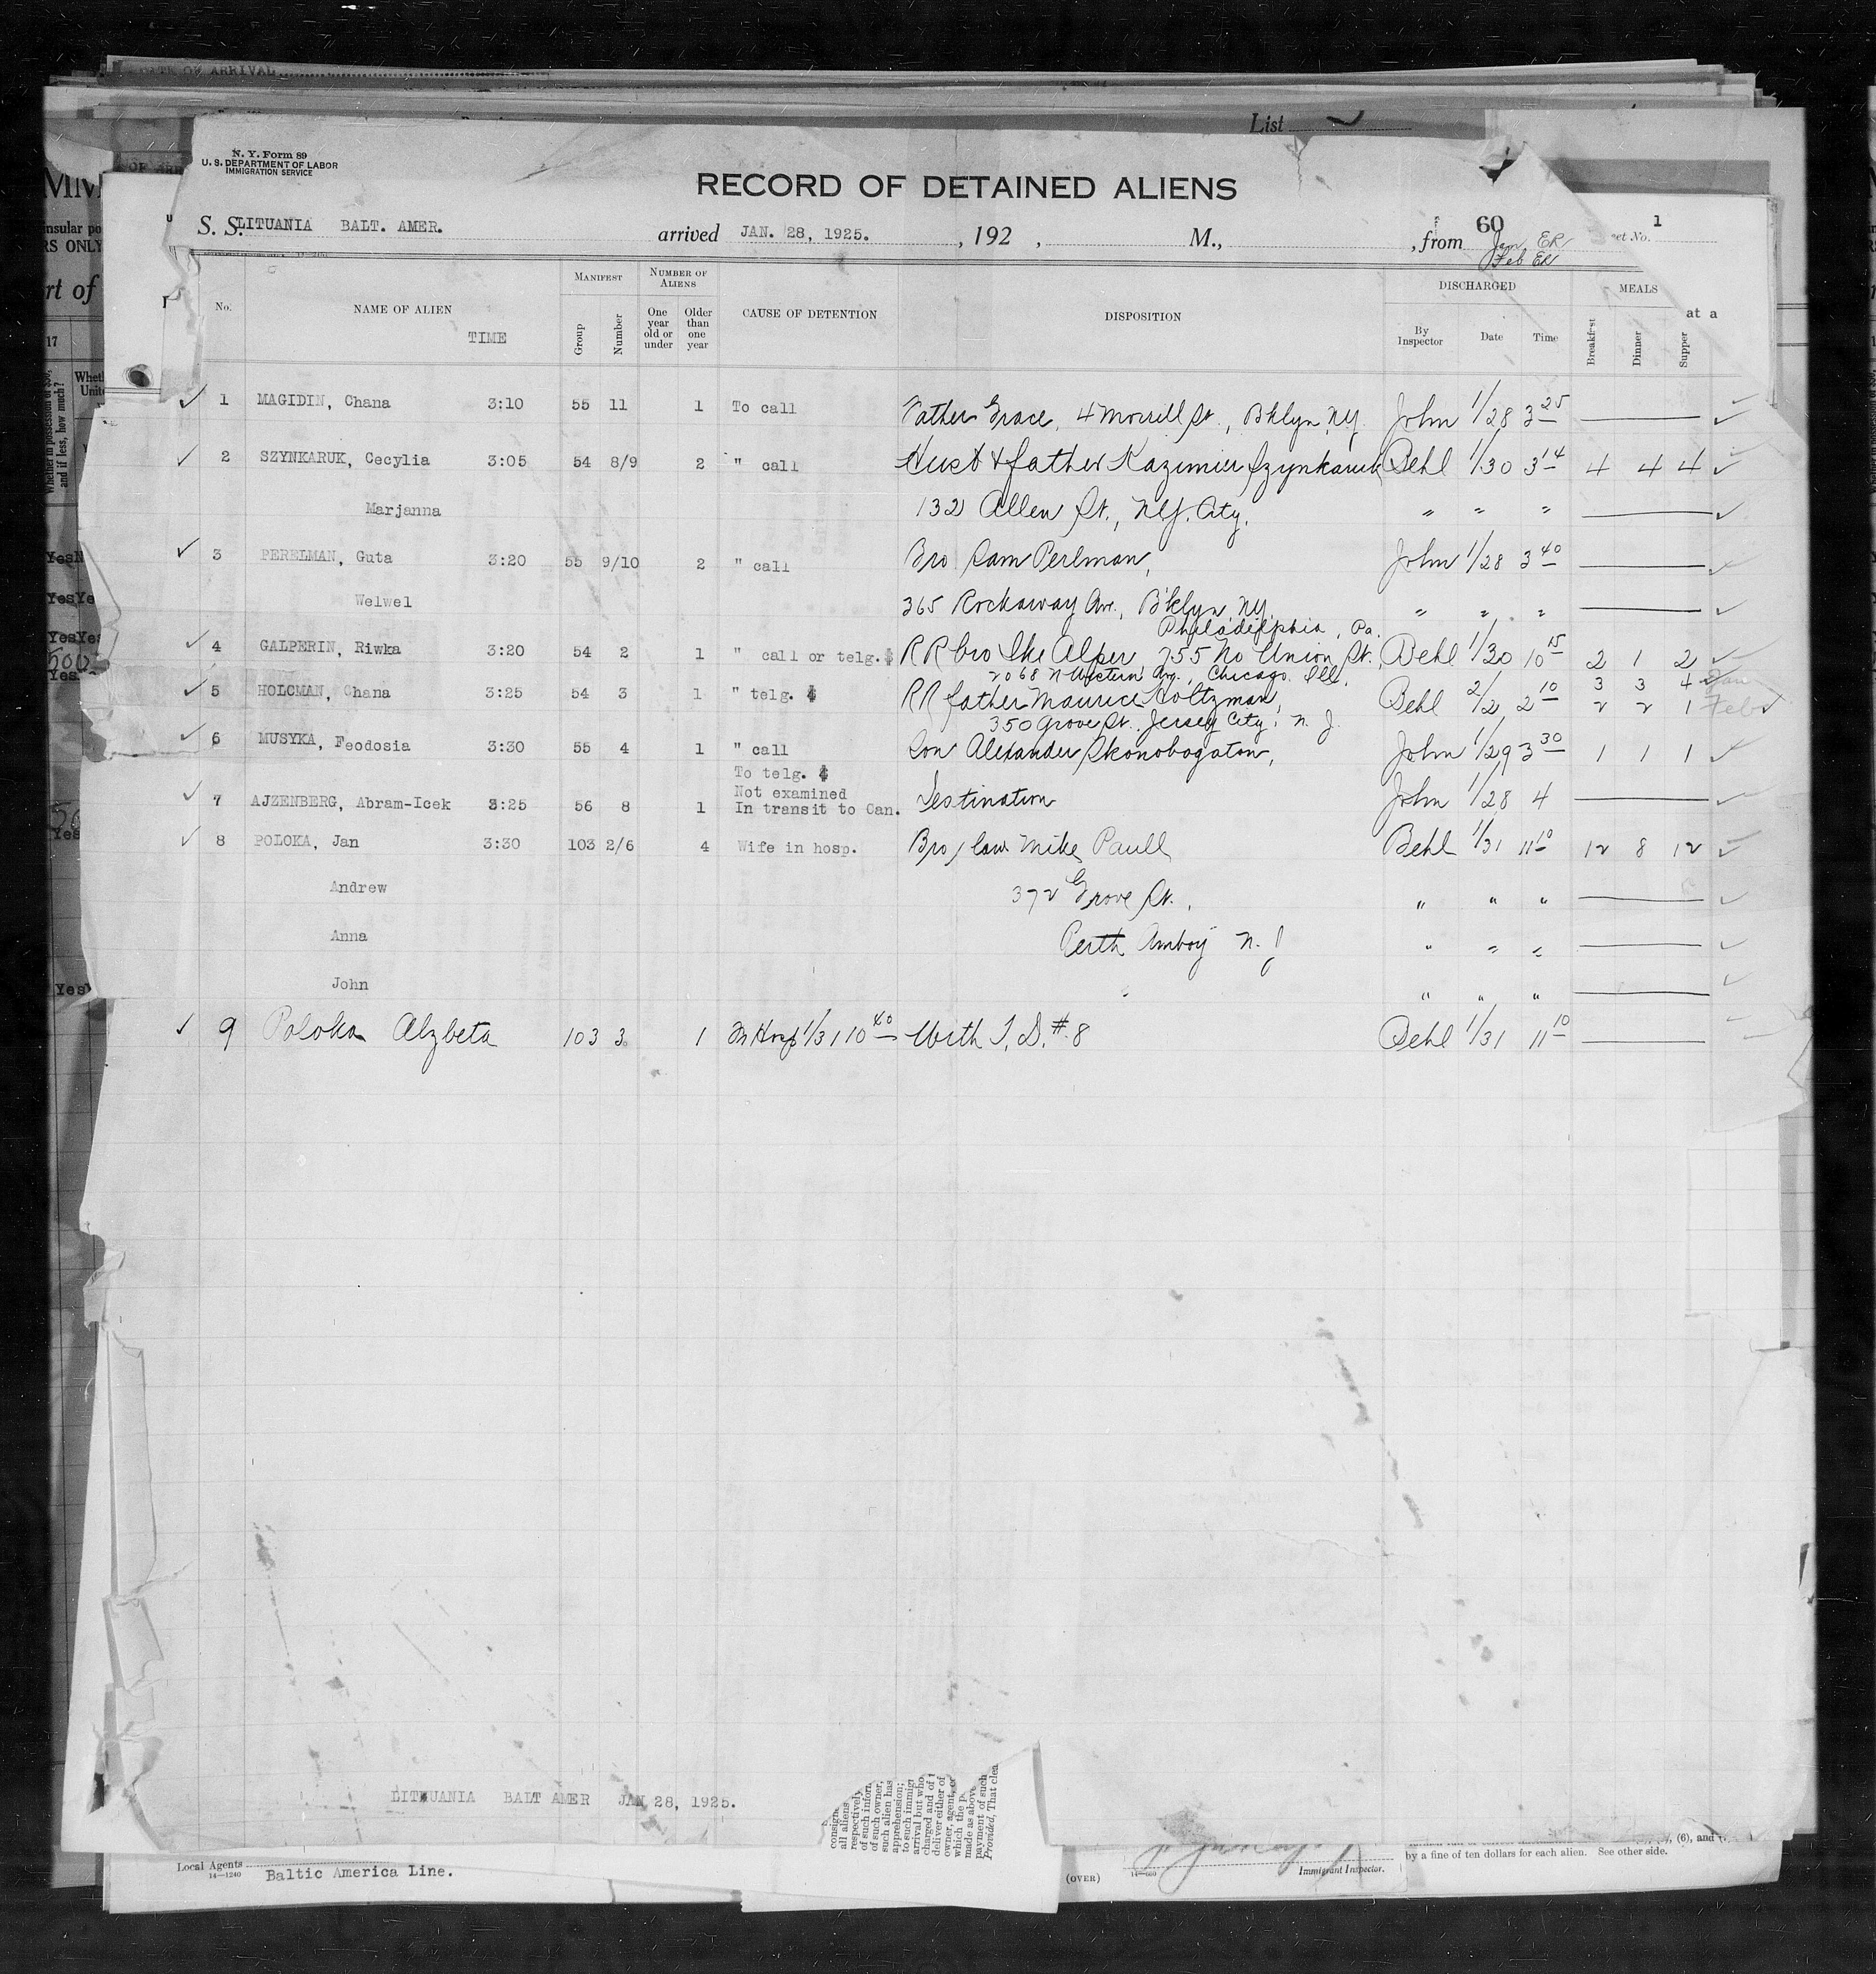 DATE OF ARRIVAL
List
N. Y. Form 89
U. S. DEPARTMENT OF LABOR
IMMIGRATION SERVICE
RECORD OF DETAINED ALIENS
S. S. LITUANIA BALT. AMER. arrived JAN. 28, 1925. , 192 , M., , from 60 No. 1
Jan ER
Feb ER
No. NAME OF ALIEN TIME MANIFEST Group Number NUMBER OF ALIENS One year old or under Older than one year CAUSE OF DETENTION DISPOSITION DISCHARGED By Inspector Date Time MEALS Breakfast Dinner Supper at a
1 MAGIDIN, Chana 3:10 55 11 1 To call Father Grace, 4 Morrell St., Bklyn NY. John 1/28 3 25
2 SZYNKARUK, Cecylia 3:05 54 8/9 2 " call Husb & father Kazimier Szynkaruk Behl 1/30 3 14 4 4 4
Marjanna 132 Allen St., N.Y. City. " " "
3 PERELMAN, Guta 3:20 55 9/10 2 " call Bro Sam Perlman, John 1/28 3 40
Welwel 365 Rockaway Av., B'klyn, NY. " " "
Philadelphia, Pa.
4 GALPERIN, Riwka 3:20 54 2 1 " call or telg. $ RR bro Ike Alper, 755 No Union St. Behl 1/30 10 15 2 1 2
2068 N Western Av., Chicago Ill. 3 3 4 Jan
5 HOLCMAN, Chana 3:25 54 3 1 " telg. $ RR father Maurice Holtzman, Behl 2/2 2 10 2 2 1 Feb
350 Grove St. Jersey City, N. J.
6 MUSYKA, Feodosia 3:30 55 4 1 " call Son Alexander Skonobogaton, John 1/29 3 30 1 1 1
To telg. $
Not examined
7 AJZENBERG, Abram-Icek 3:25 56 8 1 In transit to Can. Destination John 1/28 4
8 POLOKA, Jan 3:30 103 2/6 4 Wife in hosp. Bro / law Mike Paull Behl 1/31 11 10 12 8 12
Andrew 372 Grove St., " " "
Anna Perth Amboy N. J " " "
John " " "
9 Poloka Alzbeta 103 3 1 In Hosp 1/31 10 40 With I. D. # 8 Behl 1/31 11 10
LITHUANIA BALT AMER JAN 28, 1925.
Local Agents
14—1240
Baltic America Line.
(OVER)
Immigrant Inspector.
(6), and
by a fine of ten dollars for each alien. See other side.